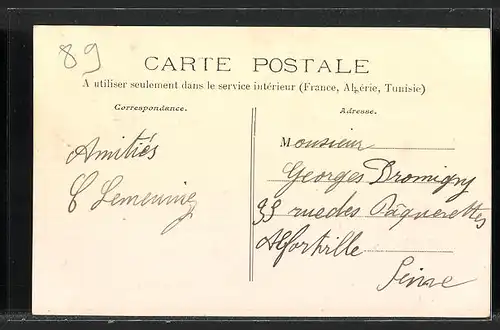 89
CARTE POSTALE
A utiliser seulement dans le service intérieur (France, Algérie, Tunisie)
Correspondance.
Adresse.
Amitiés
Monsieur
Georges Dromigny
rue des Pâquerettes
Alfortville
Seine